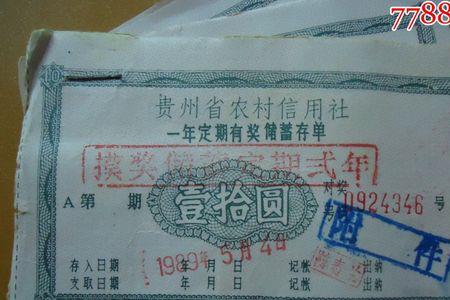 7788
10
贵州省农村信用社
一年定期有奖储蓄存单
摸奖储蓄定期弍年
A第 期 对奖号 0924346 号
壹拾圆
附件
1989年5月4日
存入日期 年 月 日 记帐 出纳
支取日期 年 月 日 记帐 出纳